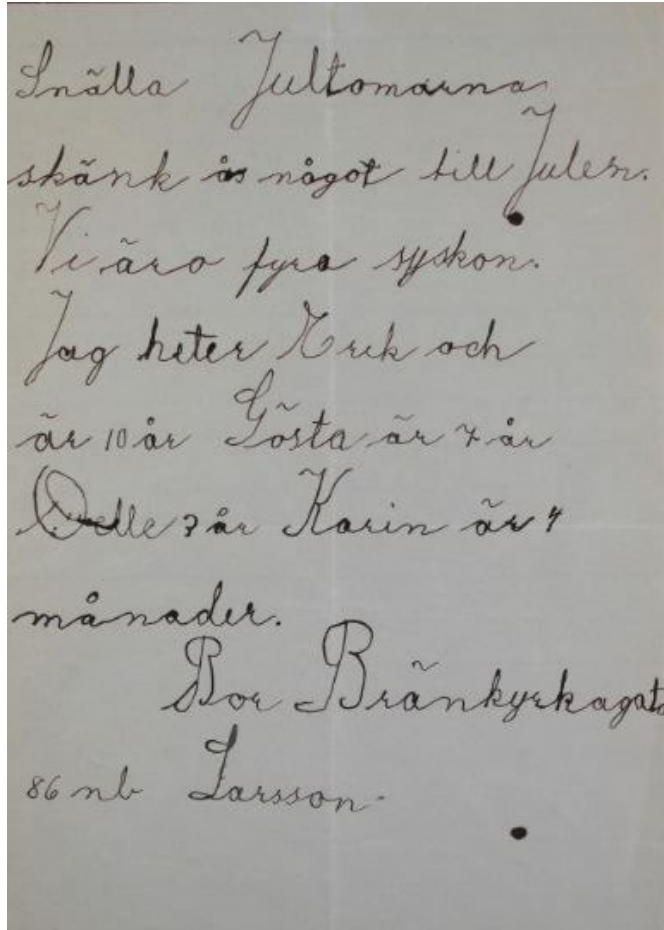 Snälla Jultomarna
skänk ås något till Julen.
Vi äro fyra syskon.
Jag heter Erik och
är 10 år Gösta är 7 år
Olle 3 år Karin är 4
månader.
Bor Bränkyrkagata
86 nb Larsson.